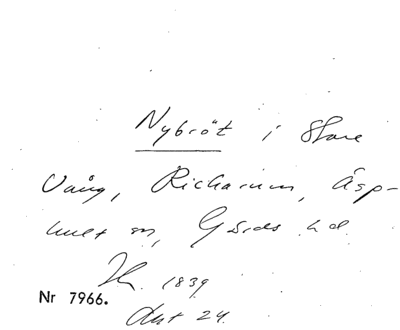 Nybröt i Stora
Vång, Richarum, Äsp-
hult sn, Gärds hd.
1839
Nr 7966.
Akt 24.